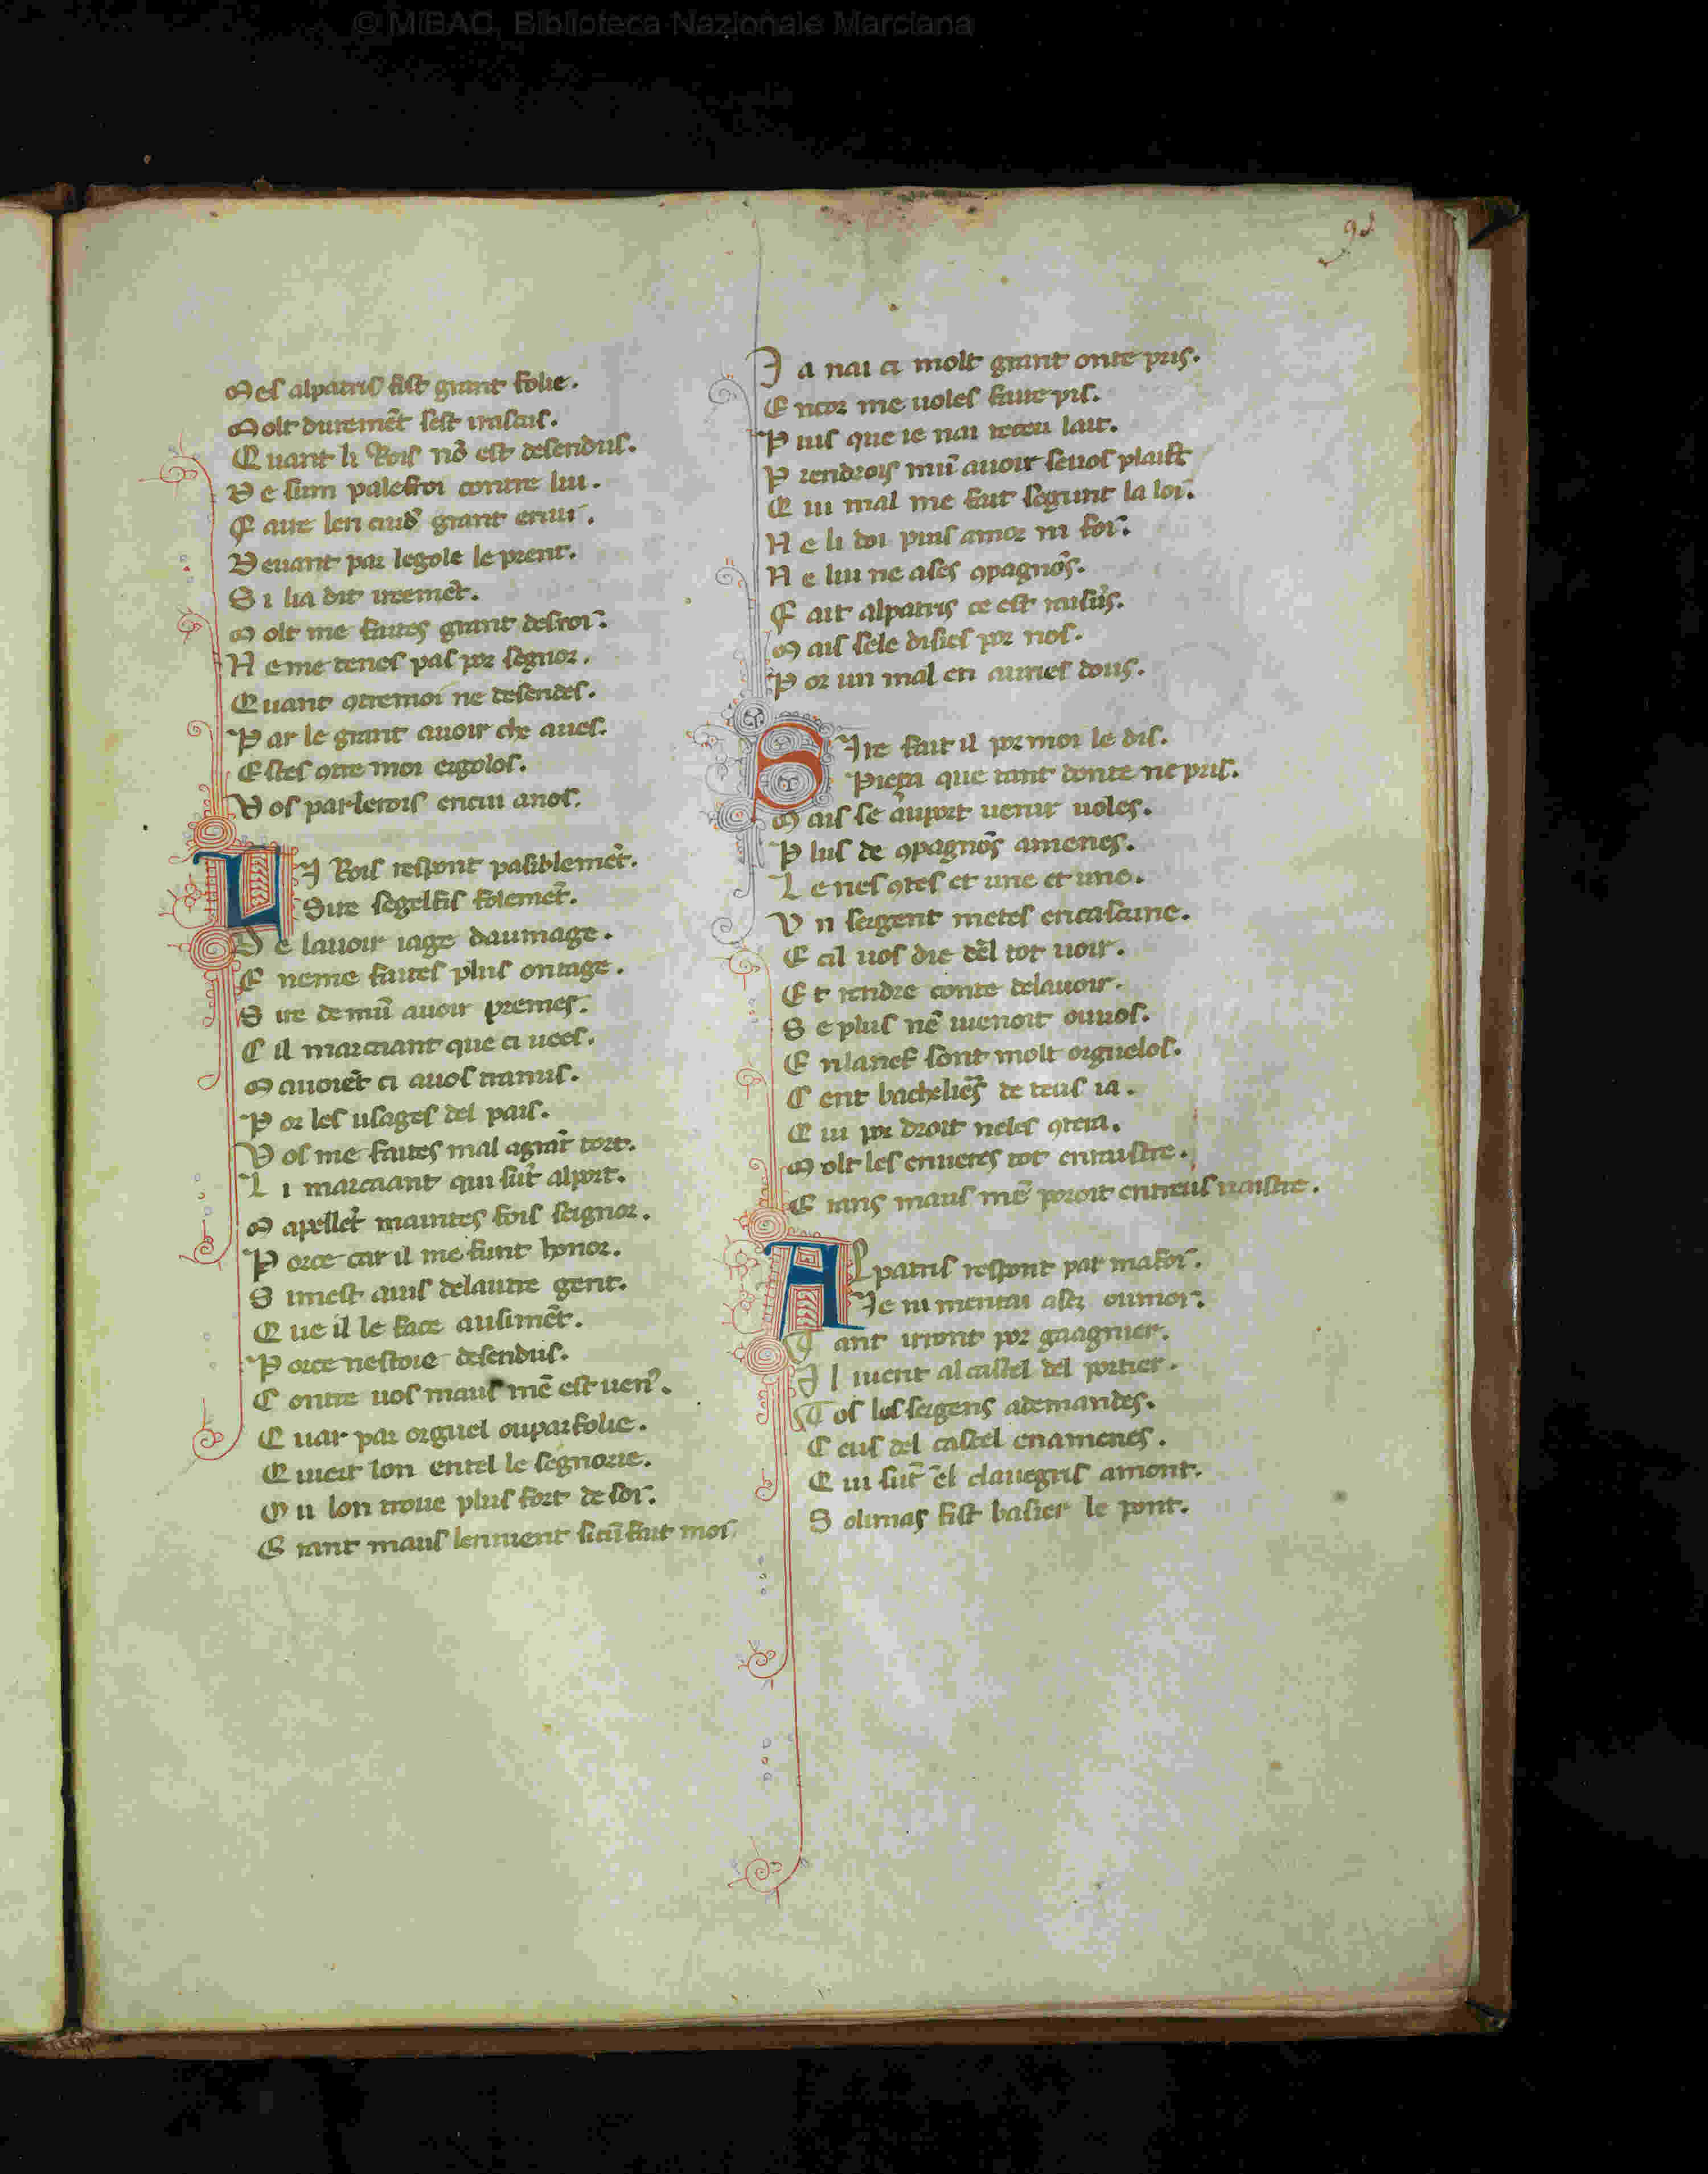 © MiBAC, Biblioteca Nazionale Marciana
Mes alpatris fist grant folie.
Molt duremēt sest irascus.
Quant li Rois nō est desendus.
De sum palefroi contre lui.
Faire len cuid grant enui.
Devant par legole le prent.
Si lia dit iremēt.
Molt me faites grant desroi.
Ne me tenes pas por segnor.
Quant ꝯtremoi ne desendes.
Par le grant avoir che aves.
Estes ꝯtre moi ergolos.
Vos parlerois encui anos.
LI Rois respont pasiblemēt.
Sire segelfis folemēt.
De lavoir iage daumage.
E neme faites plus ontage.
Sire de mū avoir premes.
Cil marciant que ci vees.
Mavoiēt ci avos tramis.
Por les usages del pais.
Vos me faites mal agrāt tort.
Li marciant qui sūt alport.
Mapellēt maintes fois seignor.
Porce car il me funt honor.
Simest avis delautre gent.
Que il le face ausimēt.
Porce nestoie desendus.
Contre vos maus mē est ven᾽.
Quar par orguel ouparfolie.
Quiert lon entel le segnorie.
Ou lon trove plus fort de soi.
E tant maus lenvient sicū fait moi
Ja nai ci molt grant onte pris.
Encor me voles faire pis.
Puis que ie nai receu lait.
Prendrois mū avoir sevos plaist
Qui mal me fait segunt la loi.
Ne li doi puis amor ni foi.
Ne lui ne ases ꝯpagnōs.
Fait alpatris ce est raisūs.
Mais sele disies por nos.
Por un mal en auries dous.
SIre fait il por moi le dis.
Pieça que tant donte ne pris.
Mais se auport venir voles.
Plus de ꝯpagnōs amenes.
Le nes ꝯtes et une et une.
Un sergent metes encascune.
E cil vos die dēl tot voir.
Et rendre conte delavoir.
Se plus nē menoit ouvos.
Enlanef sont molt orguelos.
Cent bacheliēs de teus ia.
Qui por droit neles ꝯtera.
Molt les enveres tot entraistre.
E tans maus mē poroit entreus naistre.
ALpatris respont par mafoi.
Je ni mentrai ases oumoi.
Tant iront por gaagnier.
Il vient al castel del portier.
Tos les sergens ademandes.
Ceus del castel enamenes.
Qui sūt ēl clavegris amont.
Solimas fist basier le pont.